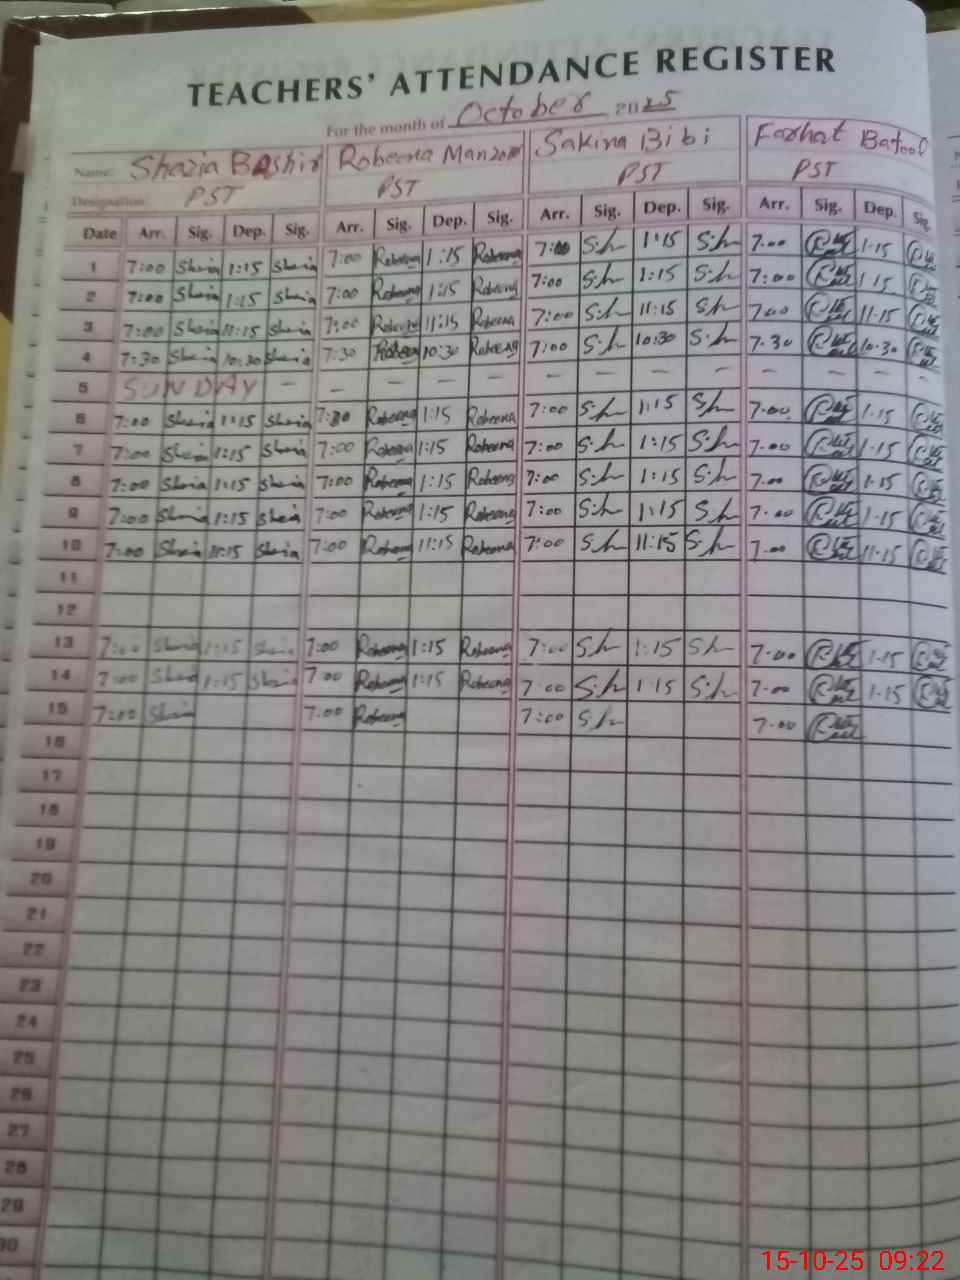 TEACHERS' ATTENDANCE REGISTER
For the month of October 2025
Name: Shazia Bashir Robeena Manzoor Sakina Bibi Farhat Batool
Designation: PST PST PST PST
Date Arr. Sig. Dep. Sig. Arr. Sig. Dep. Sig. Arr. Sig. Dep. Sig. Arr. Sig. Dep. Sig.
1 7:00 1:15 7:00 Robeena 1:15 Robeena 7:00 S.h 1:15 S.h 7.00 1.15
2 7:00 1:15 7:00 Robeena 1:15 Robeena 7:00 S.h 1:15 S.h 7:00 1.15
3 7:00 11:15 7:00 Robeena 11:15 Robeena 7:00 S.h 11:15 S.h 7.00 11.15
4 7:30 10:30 7:30 Robeena 10:30 Robeena 7:00 S.h 10:30 S.h 7.30 10.30
5 SUNDAY - - - - - - - - - - - -
6 7:00 1:15 Robeena 1:15 Robeena 7:00 S.h 1:15 S.h 7.00 1.15
7 7:00 1:15 7:00 Robeena 1:15 Robeena 7:00 S.h 1:15 S.h 7.00 1.15
8 7:00 1:15 7:00 Robeena 1:15 Robeena 7:00 S.h 1:15 S.h 7.00 1.15
9 7:00 1:15 7:00 Robeena 1:15 Robeena 7:00 S.h 1:15 S.h 7.00 1.15
10 7:00 11:15 7:00 Robeena 11:15 Robeena 7:00 S.h 11:15 S.h 7.00 11.15
11
12
13 7:00 1:15 7:00 Robeena 1:15 Robeena 7:00 S.h 1:15 S.h 7.00 1.15
14 7:00 1:15 7:00 Robeena 1:15 Robeena 7:00 S.h 1:15 S.h 7.00 1.15
15 7:00 7:00 Robeena 7:00 S.h 7.00
16
17
18
19
20
21
22
23
24
25
26
27
28
29
30
15-10-25 09:22